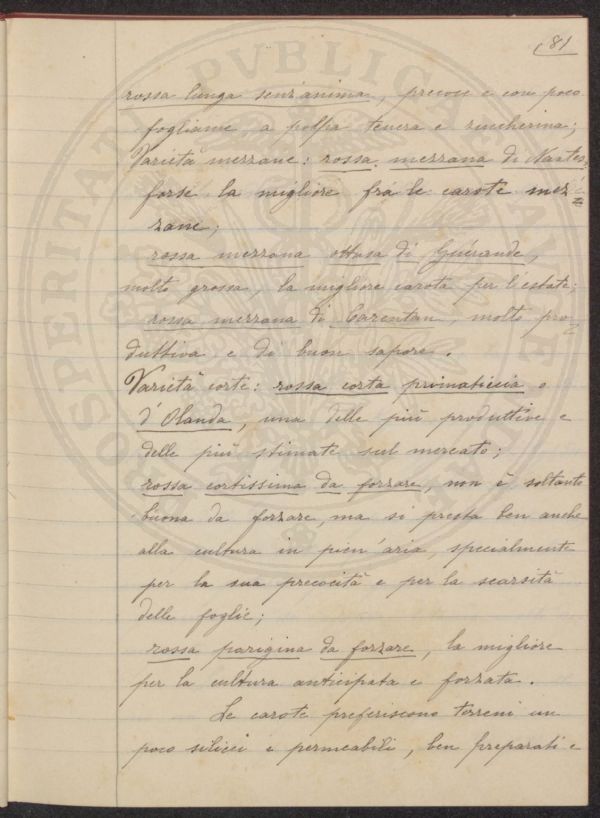 81
rossa lunga senz'anima, precoce e con poco
fogliame, a polpa tenera e zuccherina;
Varietà mezzane: rossa mezzana di Nantes,
forse la migliore frà le carote mez=
zane;
rossa mezzana ottusa di Guérande,
molto grossa, la migliore carota per l'estate;
rossa mezzana di Carentan, molto pro=
duttiva e di buon sapore.
Varietà corte: rossa corta primaticcia o
d'Olanda, una delle più produttive e
delle più stimate sul mercato;
rossa cortissima da forzare, non è soltanto
buona da forzare, ma si presta ben anche
alla cultura in pien'aria, specialmente
per la sua precocità e per la scarsità
delle foglie;
rossa parigina da forzare, la migliore
per la cultura anticipata e forzata.
Le carote preferiscono terreni un
poco silicei e permeabili, ben preparati e